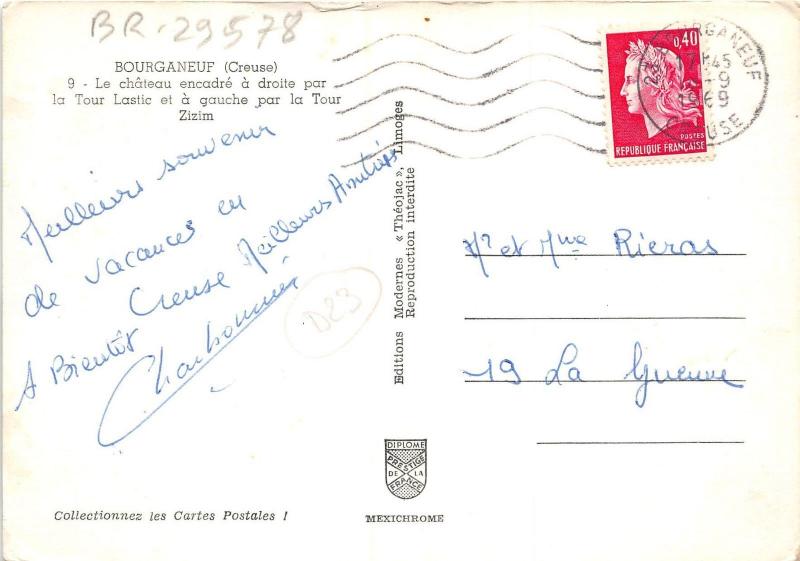 BR-29578
BOURGANEUF (Creuse)
9 - Le château encadré à droite par
la Tour Lastic et à gauche par la Tour
Zizim
Meilleurs souvenir
de vacances en
Creuse Meilleurs Amitiés
A Bientôt
Charbonnier
D23
Collectionnez les Cartes Postales !
Editions Modernes « Théojac », Limoges
Reproduction interdite
DIPLOME
PRESTIGE
DE LA
FRANCE
MEXICHROME
0,40
POSTES
REPUBLIQUE FRANÇAISE
BOURGANEUF
17H45
-9
1969
CREUSE
Mr et Mme Rieras
19 La Guenne